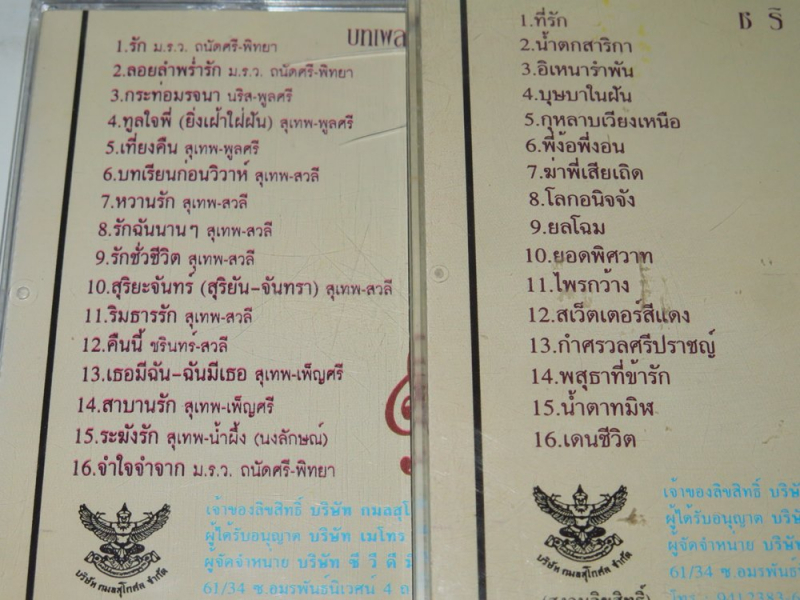 บทเพล
1.รัก ม.ร.ว. ถนัดศรี-พิทยา
2.ลอยลำพร่ำรัก ม.ร.ว. ถนัดศรี-พิทยา
3.กระท่อมรจนา นริส-พูลศรี
4.ทูลใจพี่ (ยิ่งเฝ้าใฝ่ฝัน) สุเทพ-พูลศรี
5.เที่ยงคืน สุเทพ-พูลศรี
6.บทเรียนก่อนวิวาห์ สุเทพ-สวลี
7.หวานรัก สุเทพ-สวลี
8.รักฉันนานๆ สุเทพ-สวลี
9.รักชั่วชีวิต สุเทพ-สวลี
10.สุริยะจันทร์ (สุริยัน-จันทรา) สุเทพ-สวลี
11.ริมธารรัก สุเทพ-สวลี
12.คืนนี้ ชรินทร์-สวลี
13.เธอมีฉัน-ฉันมีเธอ สุเทพ-เพ็ญศรี
14.สาบานรัก สุเทพ-เพ็ญศรี
15.ระฆังรัก สุเทพ-น้ำผึ้ง (นงลักษณ์)
16.จำใจจำจาก ม.ร.ว. ถนัดศรี-พิทยา
เจ้าของลิขสิทธิ์ บริษัท กมลสุโ
ผู้ได้รับอนุญาต บริษัท เมโทร
ผู้จัดจำหน่าย บริษัท ซี วี ดี
61/34 ซ.อมรพันธ์นิเวศน์ 4 ถ
บริษัท กมลสุโกศล จำกัด
ช ริ
1.ที่รัก
2.น้ำตกสาริกา
3.อิเหนารำพัน
4.บุษบาในฝัน
5.กุหลาบเวียงเหนือ
6.พี่ง้อพี่งอน
7.ฆ่าพี่เสียเถิด
8.โลกอนิจจัง
9.ยลโฉม
10.ยอดพิศวาท
11.ไพรกว้าง
12.สเว็ตเตอร์สีแดง
13.กำศรวลศรีปราชญ์
14.พสุธาที่ข้ารัก
15.น้ำตาทมิฬ
16.เดนชีวิต
เจ้าของลิขสิทธิ์ บริษั
ผู้ได้รับอนุญาต บริษั
ผู้จัดจำหน่าย บริษัท
61/34 ซ.อมรพันธ
โทร : 9412383-6
บริษัท กมลสุโกศล จำกัด
(สงวนลิขสิทธิ์)